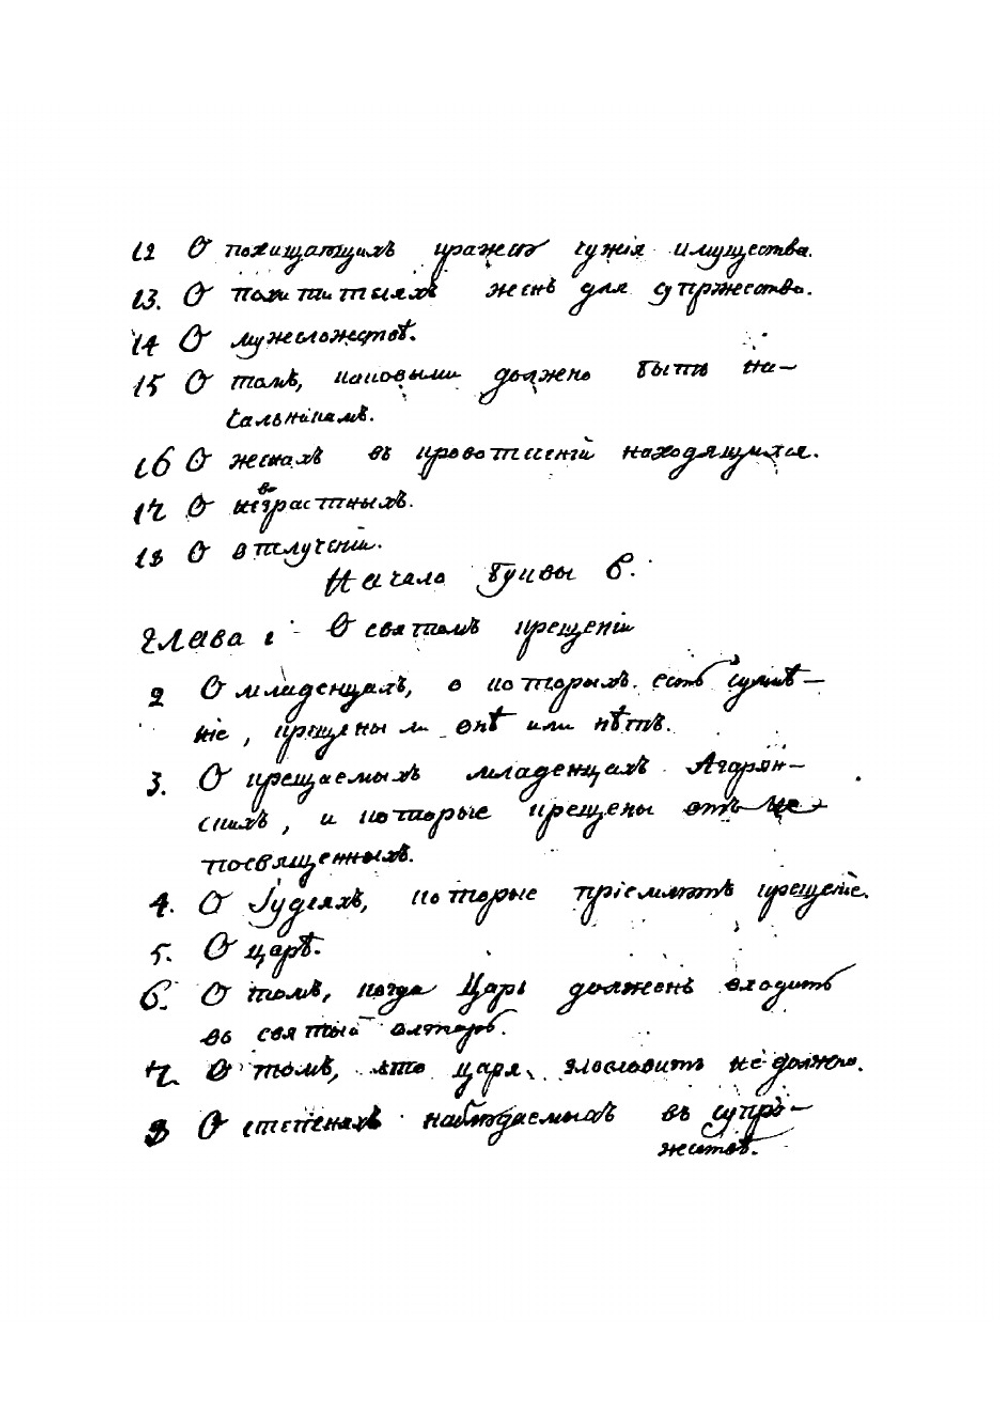 12 О похищающихъ кражею чужія имущества.
13. О похитителяхъ женъ для супржества.
14 О мужеложествѣ.
15 О томъ, каковыми должено быть на-
чальникамъ.
16 О женахъ въ кровотеченіи находящихся.
17 О возрастныхъ.
18 О отлученіи.
Начало буквы В.
Глава 1 О святомъ крещеніи
2 О младенцахъ, о которыхъ есть сумнѣ-
ніе, крещены ли онѣ или нѣтъ.
3. О крещаемыхъ младенцахъ Агарян-
скихъ, и которые крещены отъ не
посвященныхъ.
4. О Іудеяхъ, которые пріемлютъ крещеніе.
5. О царѣ.
6. О томъ, когда Царь долженъ входить
во святый олтарь.
7. О томъ, что царя злословить не должно.
8 О степенехъ наблюдаемыхъ въ супрю-
жествѣ.